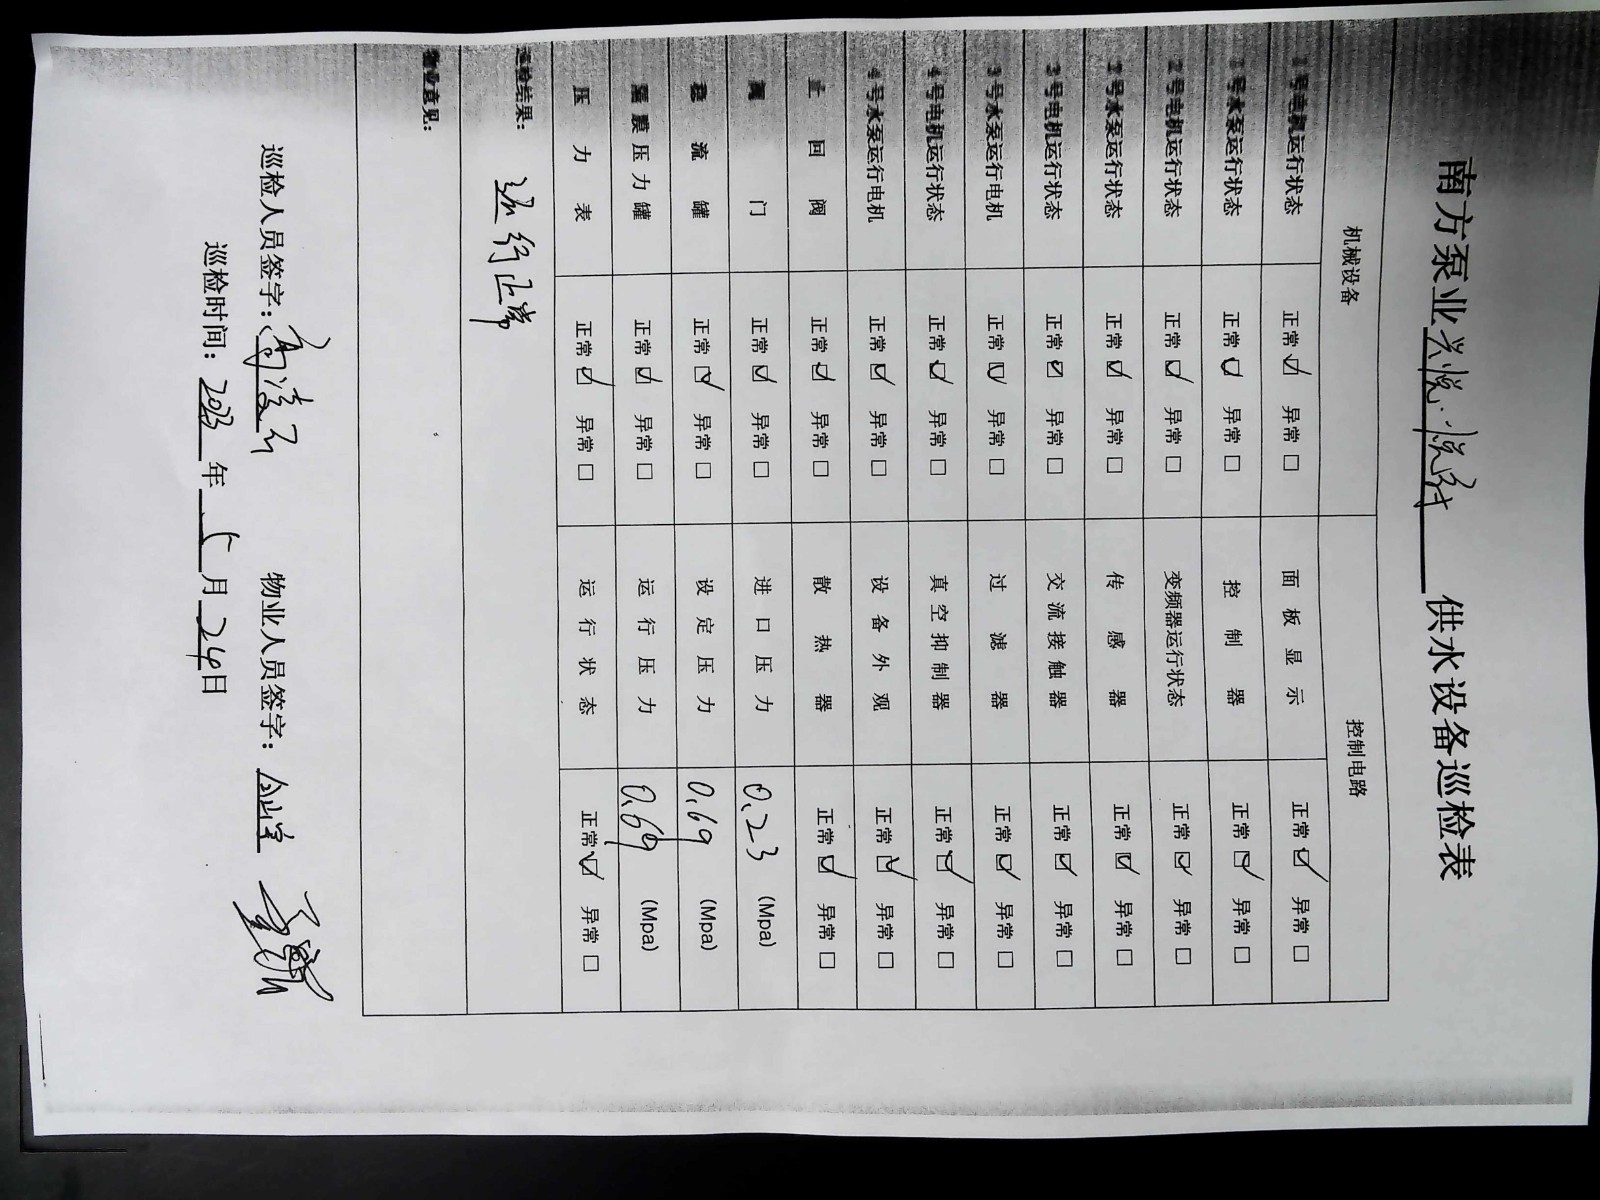 南方泵业兴悦·悦府供水设备巡检表
机械设备 控制电路
1号电机运行状态 正常☑ 异常□ 面板显示 正常☑ 异常□
1号水泵运行状态 正常☑ 异常□ 控制器 正常☑ 异常□
2号电机运行状态 正常☑ 异常□ 变频器运行状态 正常☑ 异常□
2号水泵运行状态 正常☑ 异常□ 传感器 正常☑ 异常□
3号电机运行状态 正常☑ 异常□ 交流接触器 正常☑ 异常□
3号水泵运行电机 正常☑ 异常□ 过滤器 正常☑ 异常□
4号电机运行状态 正常☑ 异常□ 真空抑制器 正常☑ 异常□
4号水泵运行电机 正常☑ 异常□ 设备外观 正常☑ 异常□
止回阀 正常☑ 异常□ 散热器 正常☑ 异常□
阀门 正常☑ 异常□ 进口压力 0.23 (Mpa)
稳流罐 正常☑ 异常□ 设定压力 0.69 (Mpa)
隔膜压力罐 正常☑ 异常□ 运行压力 0.69 (Mpa)
压力表 正常☑ 异常□ 运行状态 正常☑ 异常□
巡检结果:
运行正常
物业意见:
巡检人员签字: 物业人员签字:
巡检时间: 2023年5月24日